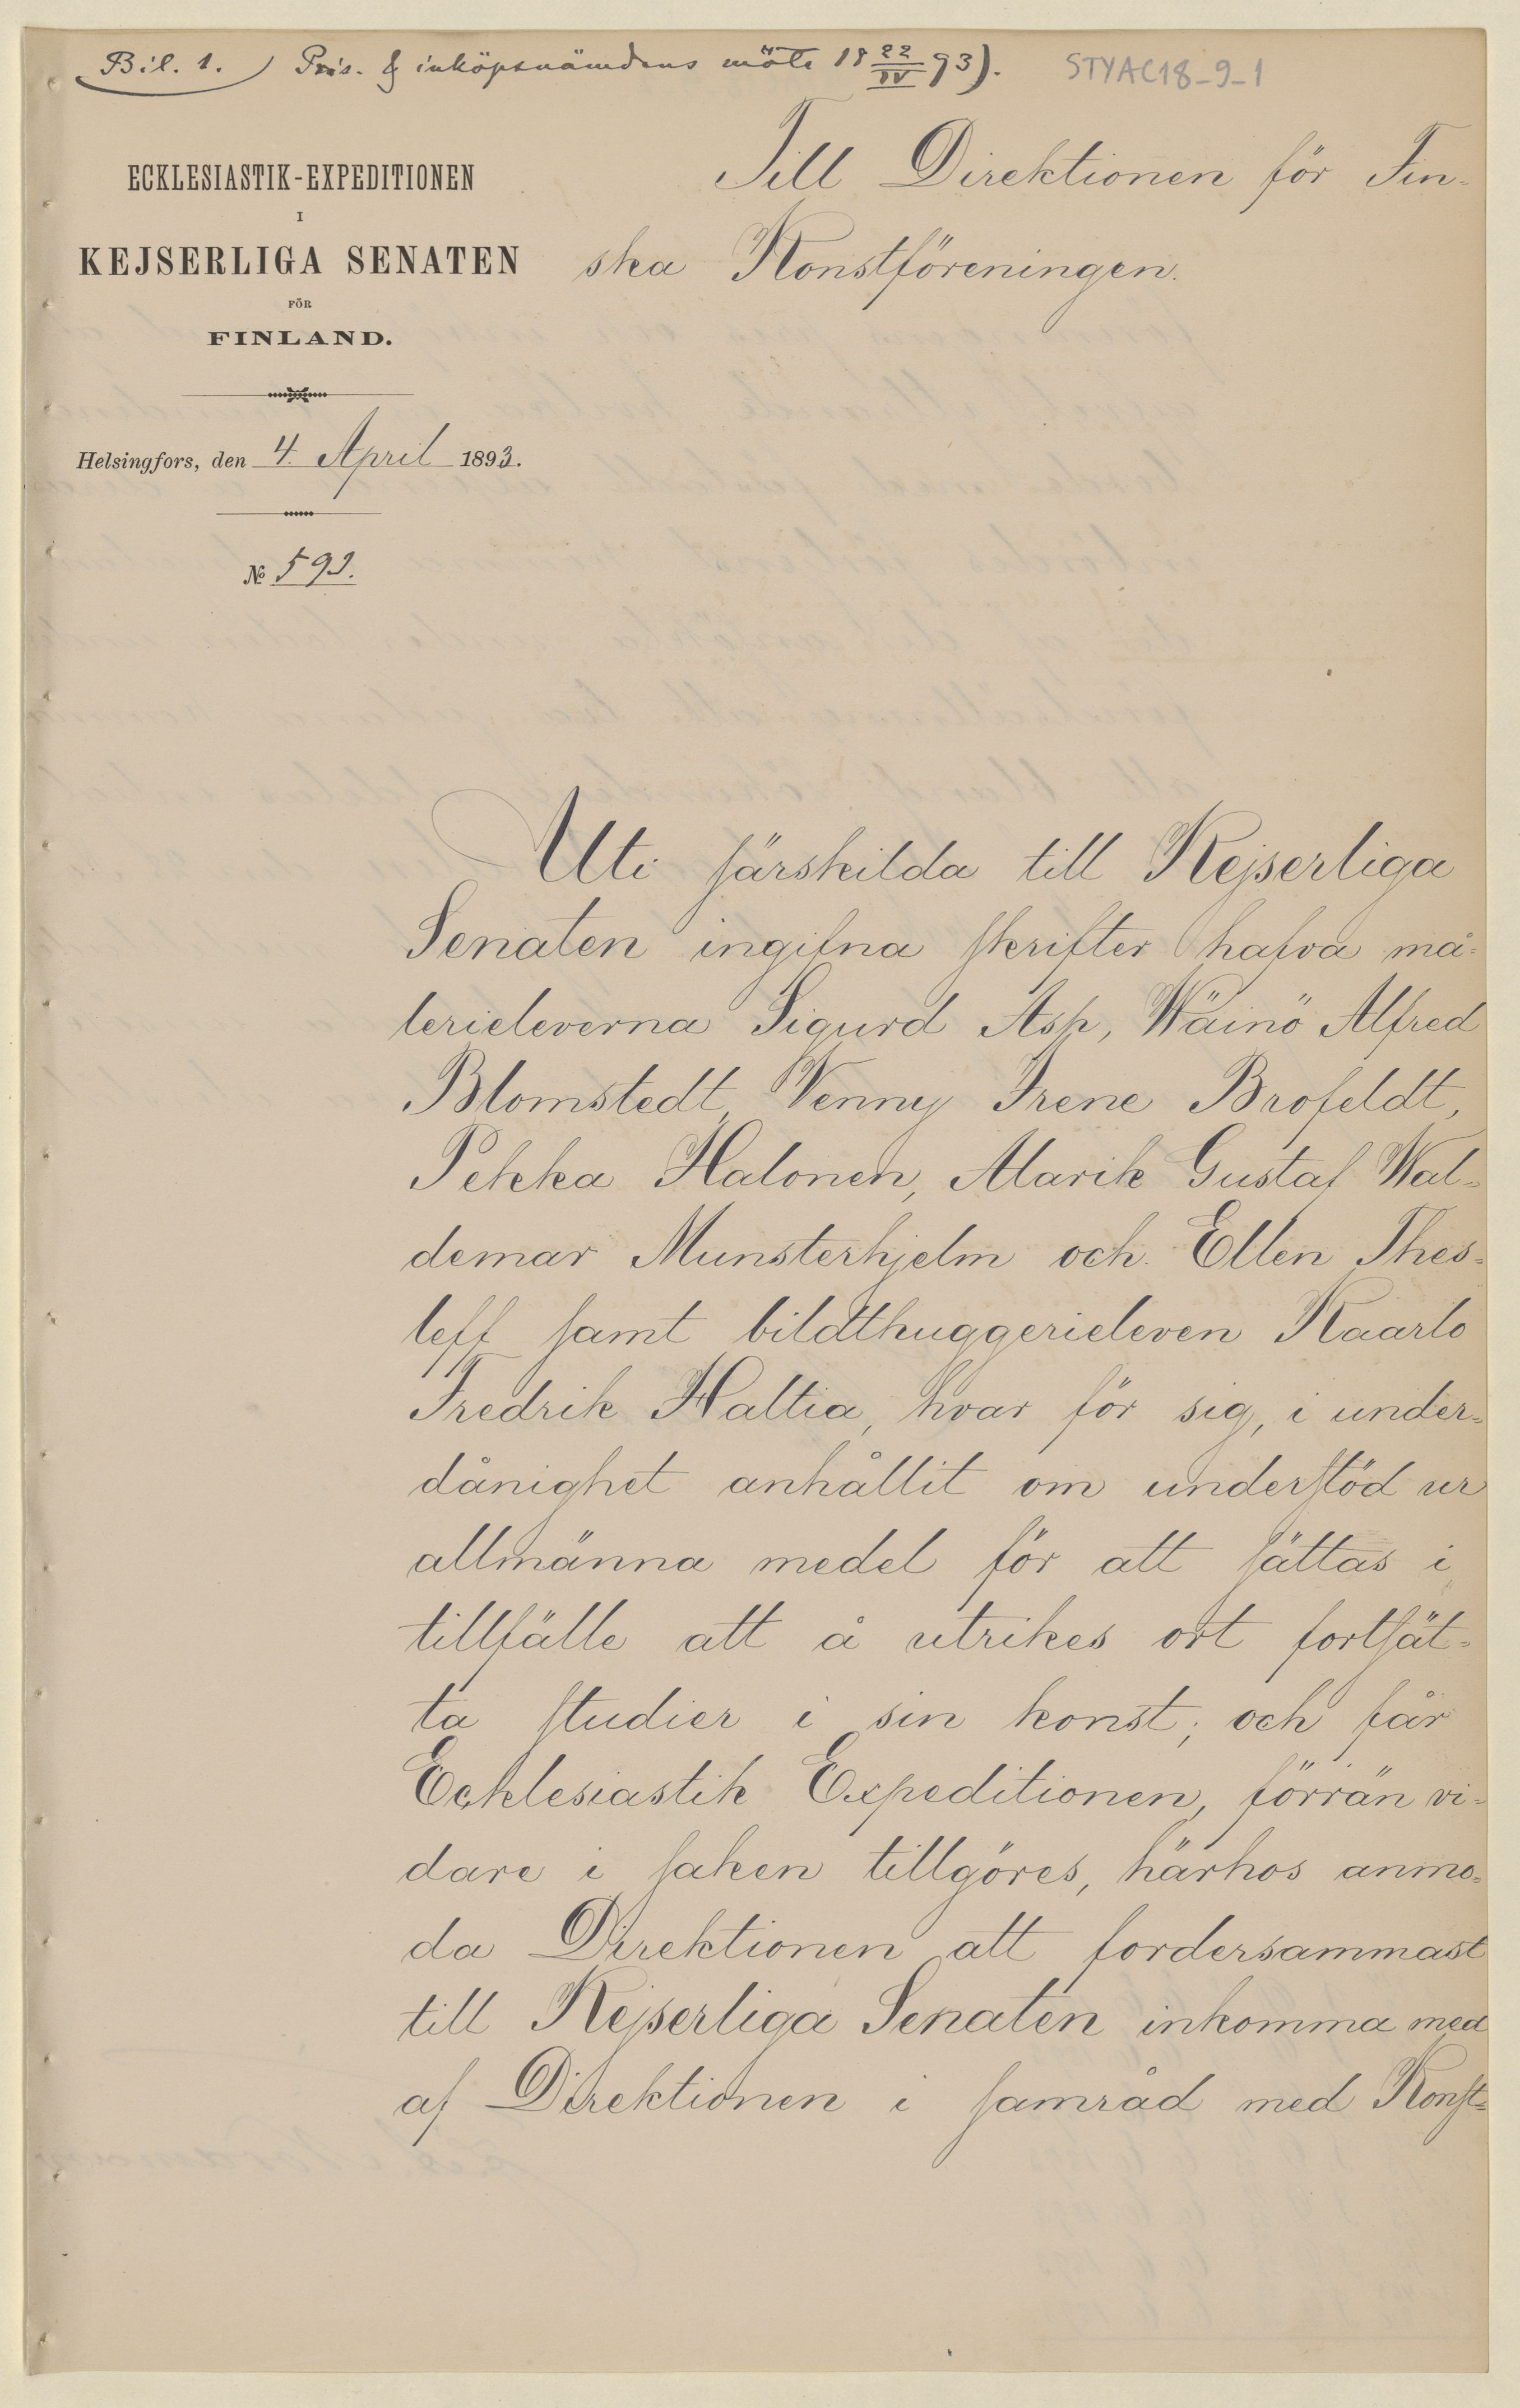 Bil. 1. Pris. & inköpsnämdens möte 18 22/IV 93).
STYAC18-9-1
Till Direktionen för Fin-
ska Konstföreningen.
ECKLESIASTIK-EXPEDITIONEN
I
KEJSERLIGA SENATEN
FÖR
FINLAND.
Helsingfors, den 4. April 1893.
№ 593.
Uti särskilda till Kejserliga
Senaten ingifna skrifter hafva må-
lerieleverna Sigurd Asp, Wäinö Alfred
Blomstedt, Venny Irene Brofeldt,
Pekka Halonen, Alarik Gustaf Wal-
demar Munsterhjelm och Ellen Thes-
leff samt bildthuggerieleven Kaarlo
Fredrik Haltia, hvar för sig, i under-
dånighet anhållit om understöd ur
allmänna medel för att sättas i
tillfälle att å utrikes ort fortsät-
ta studier i sin konst; och får
Ecklesiastik Expeditionen, förrän vi-
dare i saken tillgöres, härhos anmo-
da Direktionen att fordersammast
till Kejserliga Senaten inkomma med
af Direktionen i samråd med Konst-